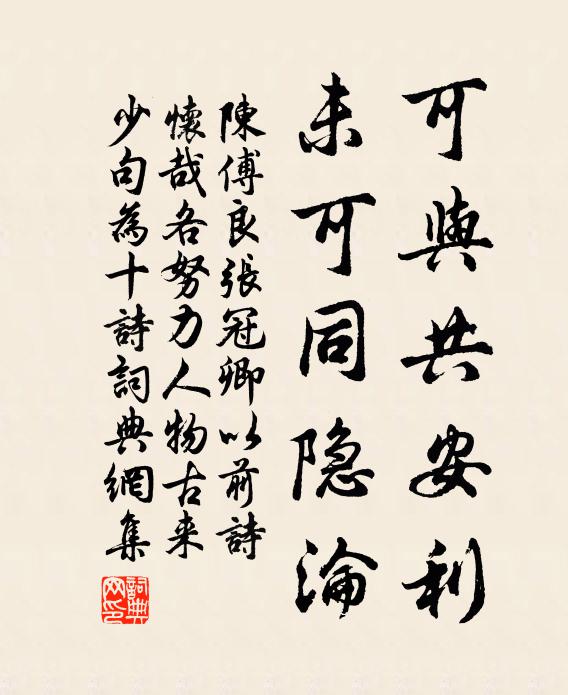 可與共安利
未可同隐淪
陳傅良張冠卿以前詩
懷哉各努力人物古来
少句為十詩詞典網集
詞典
网印